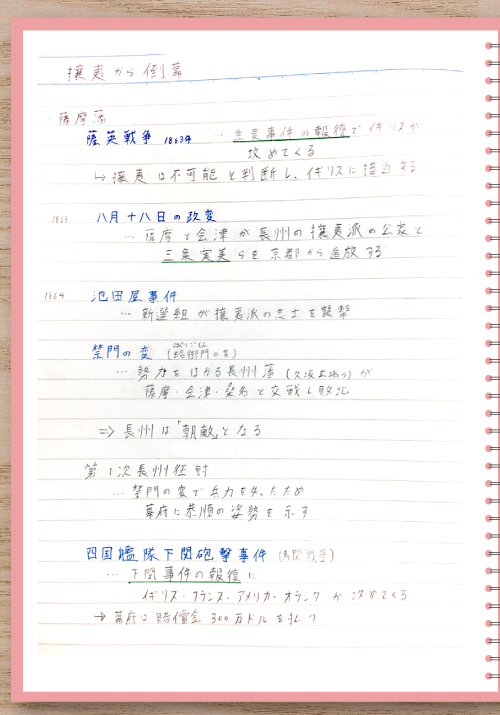 攘夷から倒幕
薩摩藩
薩英戦争 1863年 … 生麦事件の報復でイギリスが
攻めてくる
↳ 攘夷は不可能と判断し、イギリスに接近する
1863 八月十八日の政変
… 薩摩と会津が長州の攘夷派の公家と
三条実美らを京都から追放する
1864 池田屋事件
… 新選組が攘夷派の志士を襲撃
禁門の変 (蛤御門の変)
… 勢力をはかる長州藩 (久坂玄瑞ら) が
薩摩・会津・桑名と交戦し敗北
⇒ 長州は「朝敵」となる
第1次長州征討
… 禁門の変で兵力を失ったため
幕府に恭順の姿勢を示す
四国艦隊下関砲撃事件 (馬関戦争)
… 下関事件の報復に
イギリス・フランス・アメリカ・オランダが攻めてくる
→ 幕府は賠償金300万ドルを払う